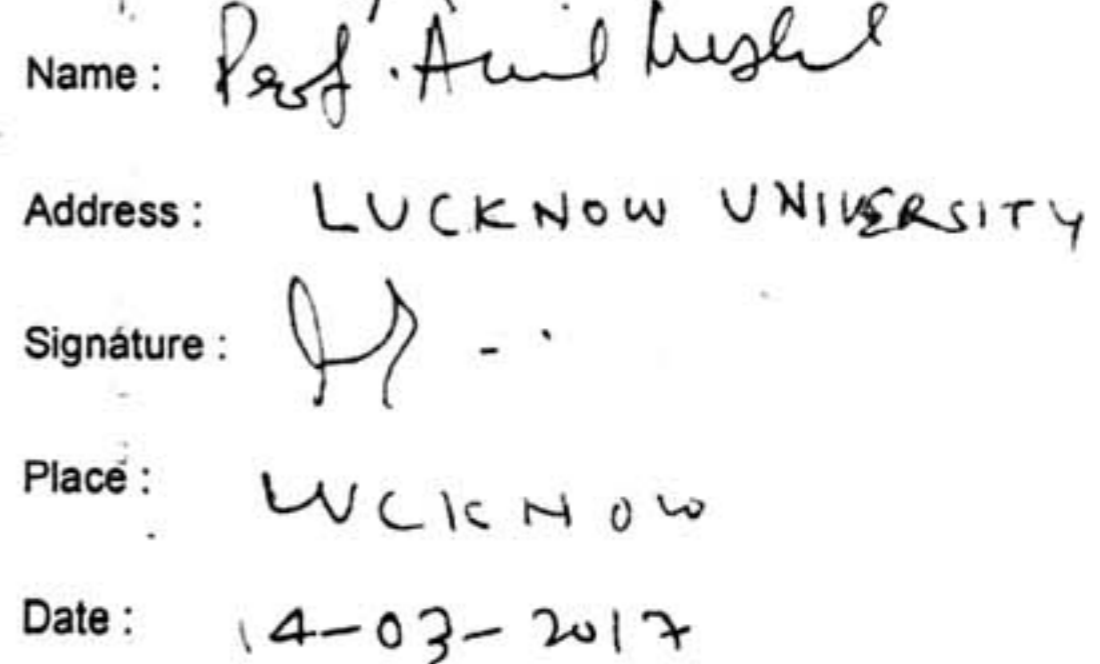 Name : Prof. Anil
Address : LUCKNOW UNIVERSITY
Signature :
Place : LUCKNOW
Date : 14-03-2017